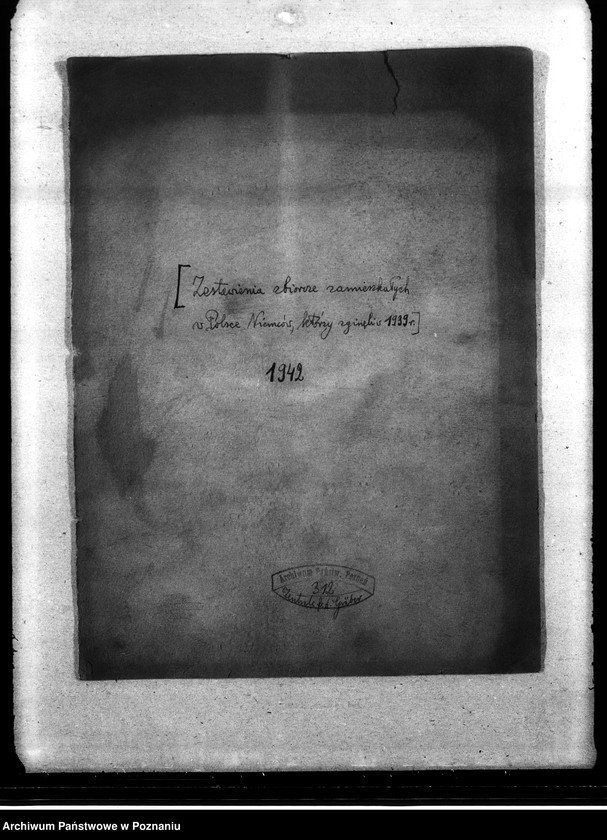 [Zestawienia zbiorcze zamieszkałych
w Polsce Niemców, którzy zginęli w 1939 r.]
1942
Archiwum Państw. Poznań
312
Zentrale f. d. Gräber
Archiwum Państwowe w Poznaniu